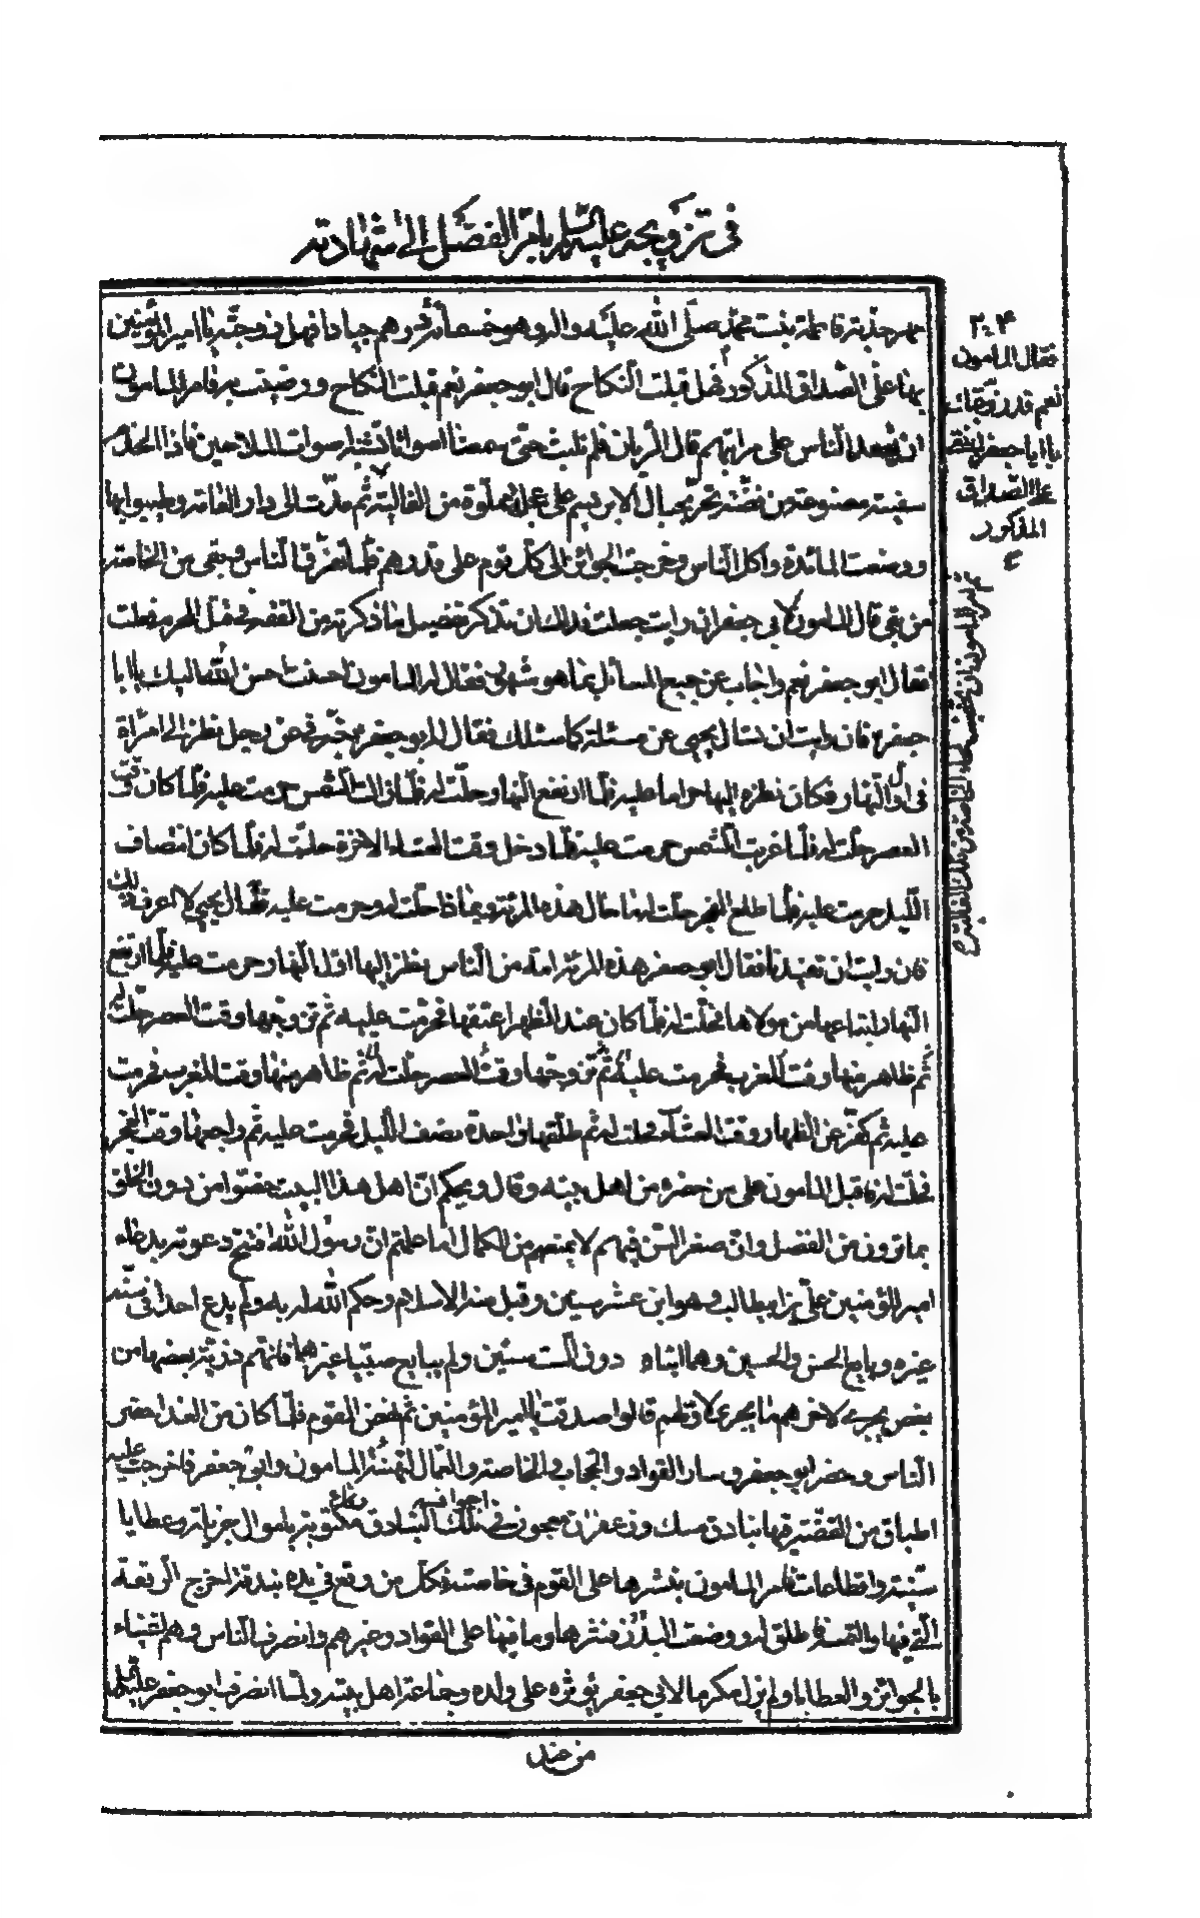 في تزويجه عليه السلم بام الفضل الى شهادته
مهر جدته فاطمة بنت محمد صلى الله عليه واله وهو خمسمأة درهم جيادا فهل زوجتني يا امير المؤمنين
بها على الصداق المذكور فهل قبلت النكاح قال ابو جعفر نعم قبلت النكاح ورضيت به فامر المامون
ان يقعد الناس على مراتبهم قال الريان فلم نلبث حتى سمعنا اصواتا تشبه اصوات الملاحين فاذا الخدم
سفينة مصنوعة من فضة تجر بحبال الابريسم على عجل مملوة من الغالية ثم مدت الى دار العامة وطيبوا بها
ووضعت الموائد واكل الناس وخرجت الجوائز الى كل قوم على قدرهم فلما تفرق الناس وبقى من الخاصة
من بقى قال المامون لابي جعفر ان رايت جعلت فداك ان تذكر تفصيل ما ذكرته من الفقه في قتل المحرم فعلت
فقال ابو جعفر نعم واجاب عن جميع المسائل بما هو مشهور فقال له المامون احسنت احسن الله اليك يا ابا
جعفر فان رايت ان تسال يحيى عن مسئلة كما سئلك فقال له ابو جعفر خبرني عن رجل نظر الى امراة
في اول النهار فكان نظره اليها حراما عليه فلما ارتفع النهار حلت له فلما زالت الشمس حرمت عليه فلما كان وقت
العصر حلت له فلما غربت الشمس حرمت عليه فلما دخل وقت العشاء الاخرة حلت له فلما كان انتصاف
الليل حرمت عليه فلما طلع الفجر حلت له ما حال هذه المرئة وبماذا حلت له وحرمت عليه فقال يحيى لا اعرف ذلك
فان رايت ان تفيدنا فقال ابو جعفر هذه المرئة امة من الناس نظر اليها اول النهار وحرمت عليه فلما ارتفع
النهار ابتاعها من مولاها فحلت له فلما كان عند الظهر اعتقها فحرمت عليه ثم تزوجها وقت العصر حلت له
ثم ظاهر منها وقت المغرب فحرمت عليه ثم تزوجها وقت العصر حلت له ثم ظاهر منها وقت المغرب فحرمت
عليه ثم كفر عن الظهار وقت العشاء فحلت له ثم طلقها واحدة نصف الليل فحرمت عليه ثم راجعها وقت الفجر
فحلت له فاقبل المامون على من حضره من اهل بيته وقال ويحكم ان اهل هذا البيت خصوا من بين الخلق
بما ترون من الفضل وان صغر السن فيهم لا يمنعهم من الكمال اما علمتم ان رسول الله افتتح دعوته بدعاء
امير المؤمنين علي بن ابيطالب وهو ابن عشر سنين وقبل منه الاسلام وحكم الله له به ولم يدع احدا في سنه
غيره وبايع الحسن والحسين وهما ابناء دون الست سنين ولم يبايع صبيا غيرهما فانهم ذرية بعضها من
بعض يجرى لاخرهم ما يجرى لاولهم قالوا صدقت يا امير المؤمنين ثم نهض القوم فلما كان من الغد احضر
الناس وحضر ابو جعفر وسار القواد والحجاب والخاصة والعمال لتهنئة المامون وابي جعفر فاخرجت عليه
اجوافه رقاع
اطباق من الفضة فيها بنادق مسك وزعفران معجون في تلك البنادق مكتوبة باموال جزيلة وعطايا
سنية واقطاعات فامر المامون بنثرها على القوم في خاصته فكل من وقع في يده بندقة اخرج الرقعة
التي فيها والتمسه فاطلق له ووضعت البدر فنثر ما فيها على القواد وغيرهم وانصرف الناس وهم اغنياء
بالجوائز والعطايا ولم يزل مكرما لابي جعفر يؤثره على ولده وجماعة اهل بيته ولما انصرف ابو جعفر عليه السلم
من عند
فقال المامون
نعم قد زوجتك
يا ابا جعفر ابنتي
على الصداق
المذكور
ثم امر المامون ان تخضب لحاء الخاصة من تلك الغالية